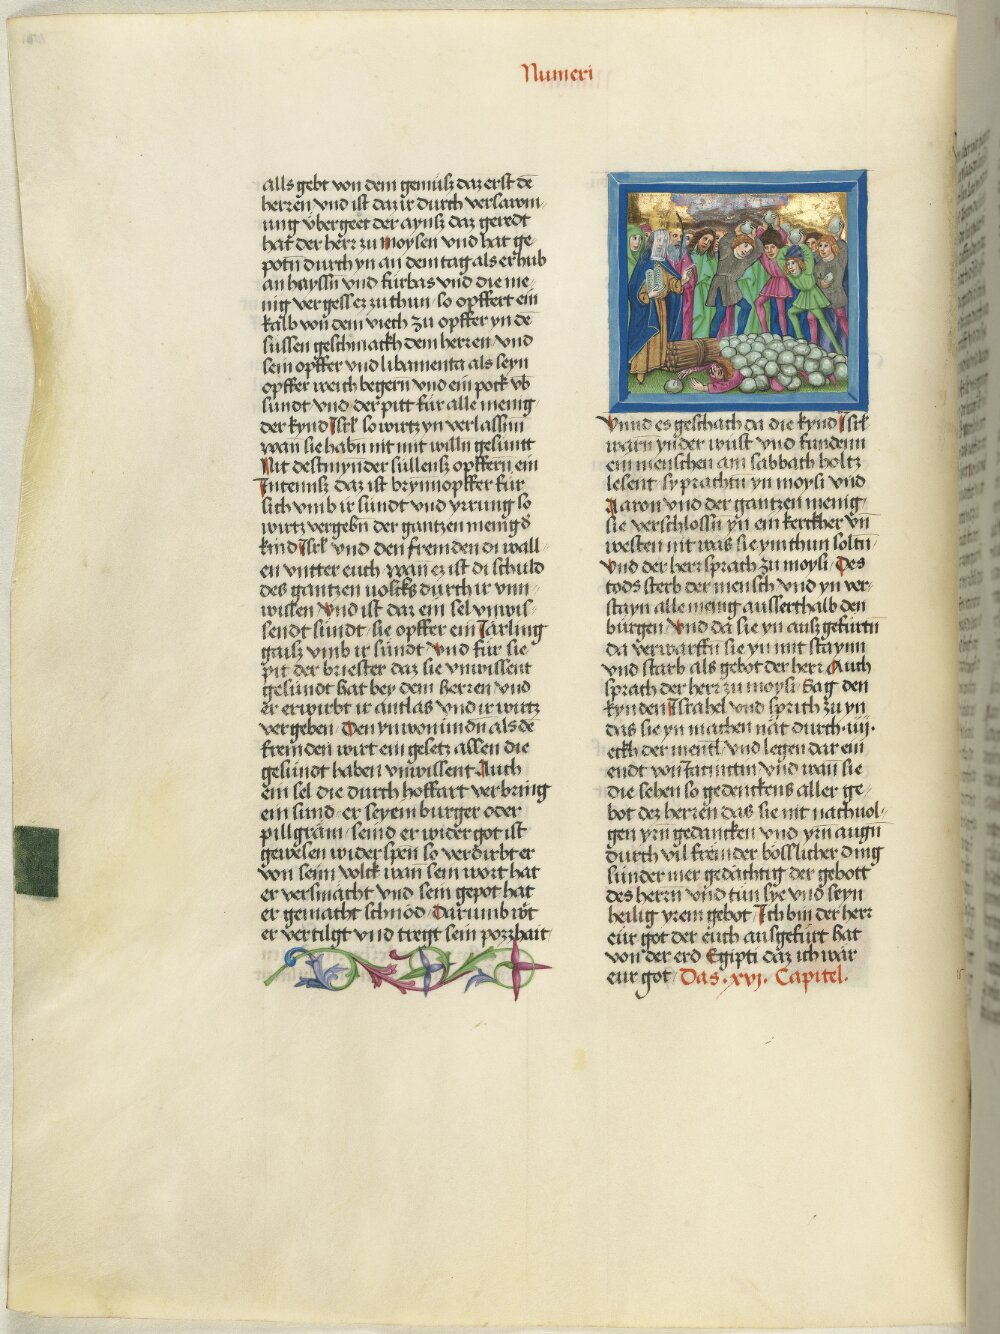 Numeri
alls gebt von dem gemüsz daz erst de
herren vnd ist daz ir durch versawm-
nung vbergeet der aynsz daz geredt
hat der herr zu moysen vnd hat ge-
potn durch yn an dem tag als er hub
an hayssn vnd fürbas vnd die me-
nig vergessez zu thun so opffert ein
kalb von dem viech zu opffer yn de
süssen geschmackh dem herren vnd
sein opffer vnd libamenta als seyn
opffer weich begern vnd ein pock vb
sündt vnd der pitt für alle menig
der kynd Isrl so wirtz yn verlassnn
wan sie habn nit mit willn gesuntt
Nit destmynder süllensz opffern ein
Intennsz daz ist brynnopffer für
sich vmb ir sündt vnd yrrung so
wirtz vergebn der gantzen menig d
kind Isrl vnd den fremden di wall-
en vntter euch wan ez ist di schuld
des gantzen volcks durch ir vnn-
wissen Vnd ist daz ein sel vnwis-
sendt sündt sie opffer ein Järling
gaisz vmb ir sündt Vnd für sie
pit der briester daz sie vnwissent
gesündt hat bey dem herren vnd
er erwirbt ir antlas vnd ir wirtz
vergeben Den ynwonundn als de
fremden wirt ein gesetz allen die
gesündt haben vnwissent Auch
ein sel die durch hoffart verbring
ein sund er sey ein burger oder
pillgram seind er wider got ist
gewesen widerspen so verdirbt er
von seim volck wan sein wort hat
er versmächt vnd sein gepot hat
er gemacht schnöd Darumb wirt
er vertilgt vnd tregt sein pozzhait
Vnnd es geschach da die kynd Isrl
warn yn der wüst vnd fundenn
ein menschen am sabbath holtz
lesent sy prachtn yn moysi vnd
Aaron vnd der gantzen menig
sie verschlossn yn ein kerckher vn
westen nit was sie ym thun soltn
Vnd der herr sprach zu moysi Des
tods sterb der mensch vnd yn ver-
stayn alle menig ausserthalb den
bürgen Vnd da sie yn ausz gefürtn
da verwarffn sie yn mit staynn
vnd starb als gebot der herr Auch
sprach der herr zu moysi Sag den
kynden Israhel vnd sprich zu yn
das sie yn machen nät durch .iiij.
eckh der mentl vnd legen dar ein
endt von Jacinctin vnd wan sie
die sehen so gedenckens aller ge-
bot dez herren das sie nit nachuol-
gen yrn gedancken vnd yrn augn
durch vil fremder bösslicher ding
sünder mer gedächtig der gebott
des herrn vnd tun sye vnd seyn
heilig yrem gebot Ich bin der herr
eur got der euch ausgefürt hat
von der erd Egipti daz ich wär
eur got Das .xvj. Capitel.